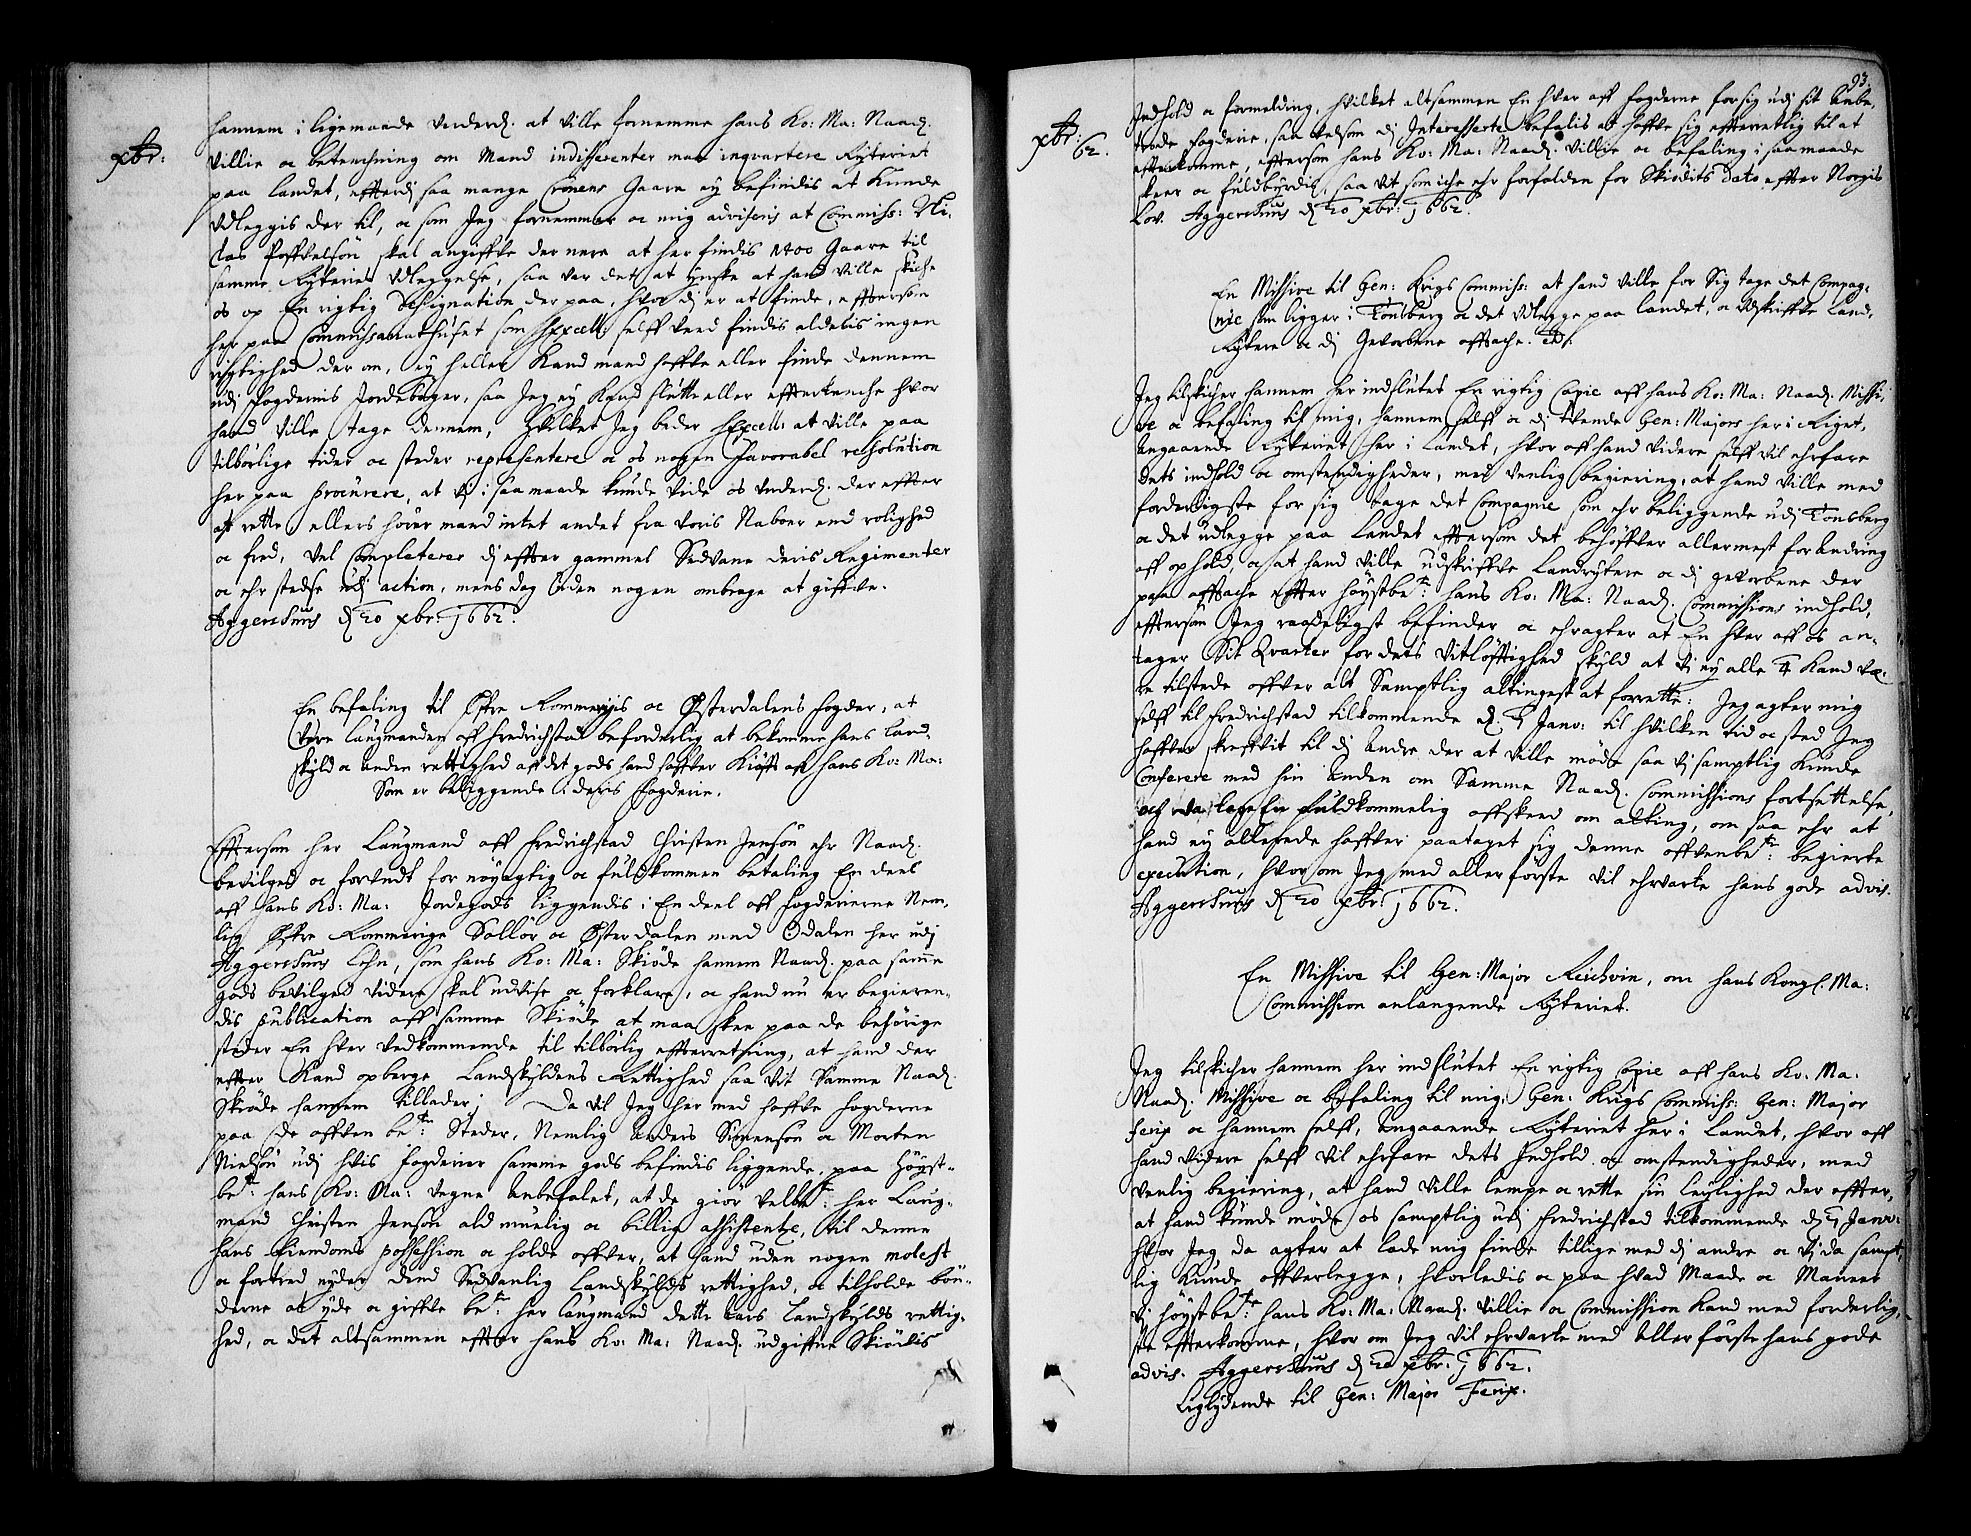 xbr:
hannem i ligemaade underd. at ville fornemme hans Ko: Ma: Naad.
villie oc betenchning om Mand indifferenter maa inqvartere Rÿteriet
paa landet, efterdi saa mange Cronens Gaare ey befindis at kunde
udleggis der til, oc som Jeg fornemmer oc mig adviseris at Commiss: Ni-
las Poffvelsøn skal angiffve der nere at her findis 1400 Gaare til
samme Rÿteries udleggelse, saa var det at ynske at hand ville skiche
os op En rigtig Designation der paa, hvor di er at finde, effterson
her paa Commissariathuset som hs Excell: selff veed findis aldelis ingen
rigtighed der om, ey heller kand mand haffve eller finde dennem
udj fogdernis Jordebøger, saa Jeg ey kand slutte eller effterkenche hvor
hand ville tage dennem, Hvilket Jeg beder hs Excell: at ville paa
tilbørlige tider oc steder repræsentere oc os nogen favorabel resolution
her paa procurere, at vj i saa maade kunde vide os underd. der effter
at rette ellers hører mand intet andet fra voris Naboer end rolighed
oc fred, vel Completerer di effter gammel Sedvane deris Regimenter
oc ehr stedse udj action, mens dog uden nogen ombrage at giffve.
Aggershuus d 20 xbr: 1662.
En befaling til Øfre Rommerigis oc Østerdalens fogder, at
være laugmanden aff fredrichstad beforderlig at bekomme hans land-
skÿld oc anden rettighed aff det gods hand haffver kiøft aff hans Ko: Ma:
Som er beliggende i deris fogderie.
Efftersom her Laugmand aff fredrichstad Christen Jensøn ehr Naad.
bevilget oc forundt for nøyagtig oc fuldkommen betaling En deel
aff hans Ko: Ma: Jordegods liggendis i En deel aff fogderierne Nem-
lig Øfre Rommerige Solløer oc Østerdalen med Odalen her udj
Aggershuus Lehn, som hans Ko: Ma: Skiøde hannem Naad. paa samme
gods bevilget videre skal udvise oc forklare, oc hand nu er begieren-
dis publication aff samme Skiøde at maa skee paa de behørige
steder En hver vedkommende til tilbørlig effterretning, at hand der
effter kand opberge Landskÿldens Rettighed saa vit Samme Naad.
Skiøde hannem tillader; Da vil Jeg her med haffve fogderne
paa de offven be:te Steder, Nemlig Anders Simensøn oc Morten
Nielsøn udj hvis fogderier samme gods befindis liggende, paa høyst-
be:te hans Ko: Ma: vegne Anbefalet, at de giør velbe:te her Laug-
mand Christen Jensøn ald muelig oc billig assistentze, til denne
hans Eiendoms possession oc holde offver, at hand uden nogen molest
oc fortred nyder dend Sedvenlig Landskÿlds rettighed, oc tilholde bøn-
derne at ÿde oc giffve be:te her laugmand dette aars Landskÿlds rettig-
hed, oc det altsammen effter hans Ko: Ma: Naad. udgiffne Skiødis
93.
xbr: 62.
Indhold oc formelding, hvilket altsammen En hver aff fogderne for sig udj sit anbe-
troede fogderie, saa velsom di Interesserte befalis at haffve sig effterretlig til at
effterkomme, effterson hans Ko: Ma: Naad. villie oc befaling i saa maade
skeer oc fuldbyrdis, saa vit som iche ehr forfalden for Skiødits dato effter Norgis
Lov. Aggershuus d 20 xbr: 1662.
En Missive til Gen: Krigs Commiss: at hand ville for Sig tage det Compag-
nie som ligger i Tonsberg oc det udlegge paa landet, oc udskriffve Land-
Rÿtere oc di Gevorbene afftache.
Jeg tilskicher hannem her indslutet En rigtig Copie aff hans Ko: Ma: Naad. Missi-
ve oc befaling til mig, hannem selff oc di tvende Gen: Majors her i Riget,
angaaende Rÿteriet her i Landet, hvor aff hand videre selff vil ehrfare
dets indhold oc omstendigheder, med venlig begiering, at hand ville med
forderligste for sig tage det Compagnie som ehr beliggende udj Tonsberg
oc det udlegge paa Landet effterson det behøffver allermest forandring
aff ophold, oc at hand ville udskriffve Landrÿtere oc di gevorbene der
paa afftache effter høystbe:te hans Ko: Ma: Naad. Commissions indhold,
effterson Jeg raadeligst befinder oc ehragter at En hver aff os an-
tager Sit Qvarter for dets vitløfftighed skyld at vj ey alle 4 kand væ-
re tilstede offver alt Samptlig altingest at forrette: Jeg agter mig
selff til fredrichstad tilkommende d. 9 Janv: til hvilken tid oc sted Jeg
haffver skreffvit til di andre der at ville møde saa vj samptlig kunde
Conferere med hin anden om Samme Naad. Commissions fortsettelse,
och da tage En fuldkommelig affskeed om alting, om saa ehr at
hand ey allerede haffver paataget sig denne offvenbe:te begierte
execution, hvor om Jeg med allerførste vil ehrvarte hans gode advis.
Aggershuus d 20 xbr: 1662.
En Missive til Gen: Major Reichvin, om hans Kongl. Ma:
Commission anlangende Rÿteriet.
Jeg tilskicher hannem her indslutet En rigtig Copie aff hans Ko: Ma:
Naad. Missive oc befaling til mig, Gen: Krigs Commiss: Gen: Major
Ferix oc hannem selff, angaaende Rÿteriet her i Landet, hvor aff
hand videre selff vil ehrfare dets Indhold oc omstendigheder, med
venlig begiering, at hand ville lempe oc rette sin leylighed der effter,
at hand kunde møde os samptlig udj fredrichstad tilkommende d 9 Janv:
hvor Jeg da agter at lade mig finde tillige med di andre oc vj da sampt-
lig kunde offverlegge, hvorledis oc paa hvad Maade oc Maneer
vj høystbe:te hans Ko: Ma: Naad. villie oc Commission kand med forderlig-
ste effterkomme, hvor om Jeg vil ehrvarte med allerførste hans gode
advis. Aggershuus d 20 xbr: 1662.
Liglydende til Gen: Major Ferix.